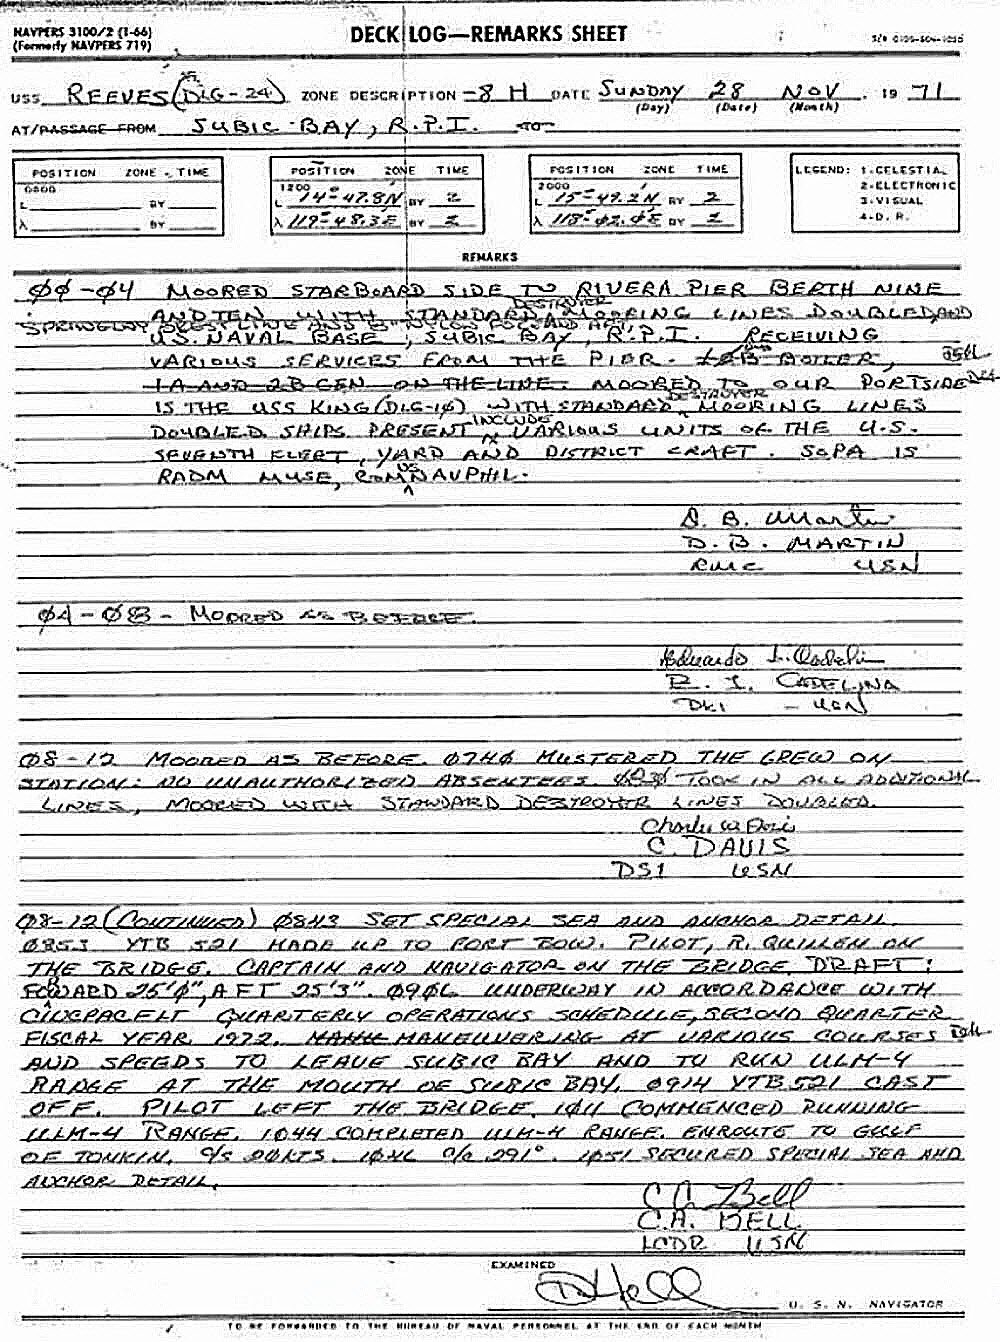 NAVPERS 3100/2 (1-66)
(Formerly NAVPERS 719)
DECK LOG—REMARKS SHEET
USS REEVES (DLG-24) ZONE DESCRIPTION -8 H DATE SUNDAY 28 NOV 19 71
(Day) (Date) (Month)
AT/PASSAGE FROM SUBIC BAY, R.P.I. TO
POSITION ZONE TIME
0800
L BY
λ BY
POSITION ZONE TIME
1200
L 14°-47.8'N BY 2
λ 119°-48.3'E BY 2
POSITION ZONE TIME
2000
L 15°-49.2'N BY 2
λ 118°-02.0'E BY 2
LEGEND: 1-CELESTIAL
2-ELECTRONIC
3-VISUAL
4-D. R.
REMARKS
ØØ-Ø4 MOORED STARBOARD SIDE TO RIVERA PIER BERTH NINE
AND TEN WITH STANDARD DESTROYER MOORING LINES DOUBLED, AND
SPRINGLAY BREAST LINE AND 8" NYLON FORE AND AFT,
U.S. NAVAL BASE, SUBIC BAY, R.P.I. RECEIVING
VARIOUS SERVICES FROM THE PIER. BOILER,
1A AND 2B GEN ON THE LINE. MOORED TO OUR PORTSIDE
IS THE USS KING (DLG-1Ø) WITH STANDARD DESTROYER MOORING LINES
DOUBLED. SHIPS PRESENT INCLUDE VARIOUS UNITS OF THE U.S.
SEVENTH FLEET, YARD AND DISTRICT CRAFT. SOPA IS
RADM MUSE, COMUSNAVPHIL.
D. B. Martin
D. B. MARTIN
RMC USN
Ø4-Ø8 - MOORED AS BEFORE.
E. I. CADELINA
DK1 - USN
Ø8-12 MOORED AS BEFORE. Ø74Ø MUSTERED THE CREW ON
STATION: NO UNAUTHORIZED ABSENTEES. TOOK IN ALL ADDITIONAL
LINES, MOORED WITH STANDARD DESTROYER LINES DOUBLED.
C. DAVIS
DS1 USN
Ø8-12 (CONTINUED) Ø843 SET SPECIAL SEA AND ANCHOR DETAIL.
Ø853 YTB 521 MADE UP TO PORT BOW. PILOT, R. QUILLEN ON
THE BRIDGE. CAPTAIN AND NAVIGATOR ON THE BRIDGE. DRAFT:
FORWARD 25'Ø", AFT 25'3". Ø9Ø6 UNDERWAY IN ACCORDANCE WITH
CINCPACFLT QUARTERLY OPERATIONS SCHEDULE, SECOND QUARTER
FISCAL YEAR 1972. MANEUVERING AT VARIOUS COURSES
AND SPEEDS TO LEAVE SUBIC BAY AND TO RUN ULM-4
RANGE AT THE MOUTH OF SUBIC BAY. Ø914 YTB 521 CAST
OFF. PILOT LEFT THE BRIDGE. 1Ø11 COMMENCED RUNNING
ULM-4 RANGE. 1Ø44 COMPLETED ULM-4 RANGE. ENROUTE TO GULF
OF TONKIN. C/S 20 KTS. 1Ø46 C/C 291°. 1Ø51 SECURED SPECIAL SEA AND
ANCHOR DETAIL.
C A Bell
C.A. BELL
LCDR USN
EXAMINED
U. S. N. NAVIGATOR
TO BE FORWARDED TO THE BUREAU OF NAVAL PERSONNEL AT THE END OF EACH MONTH